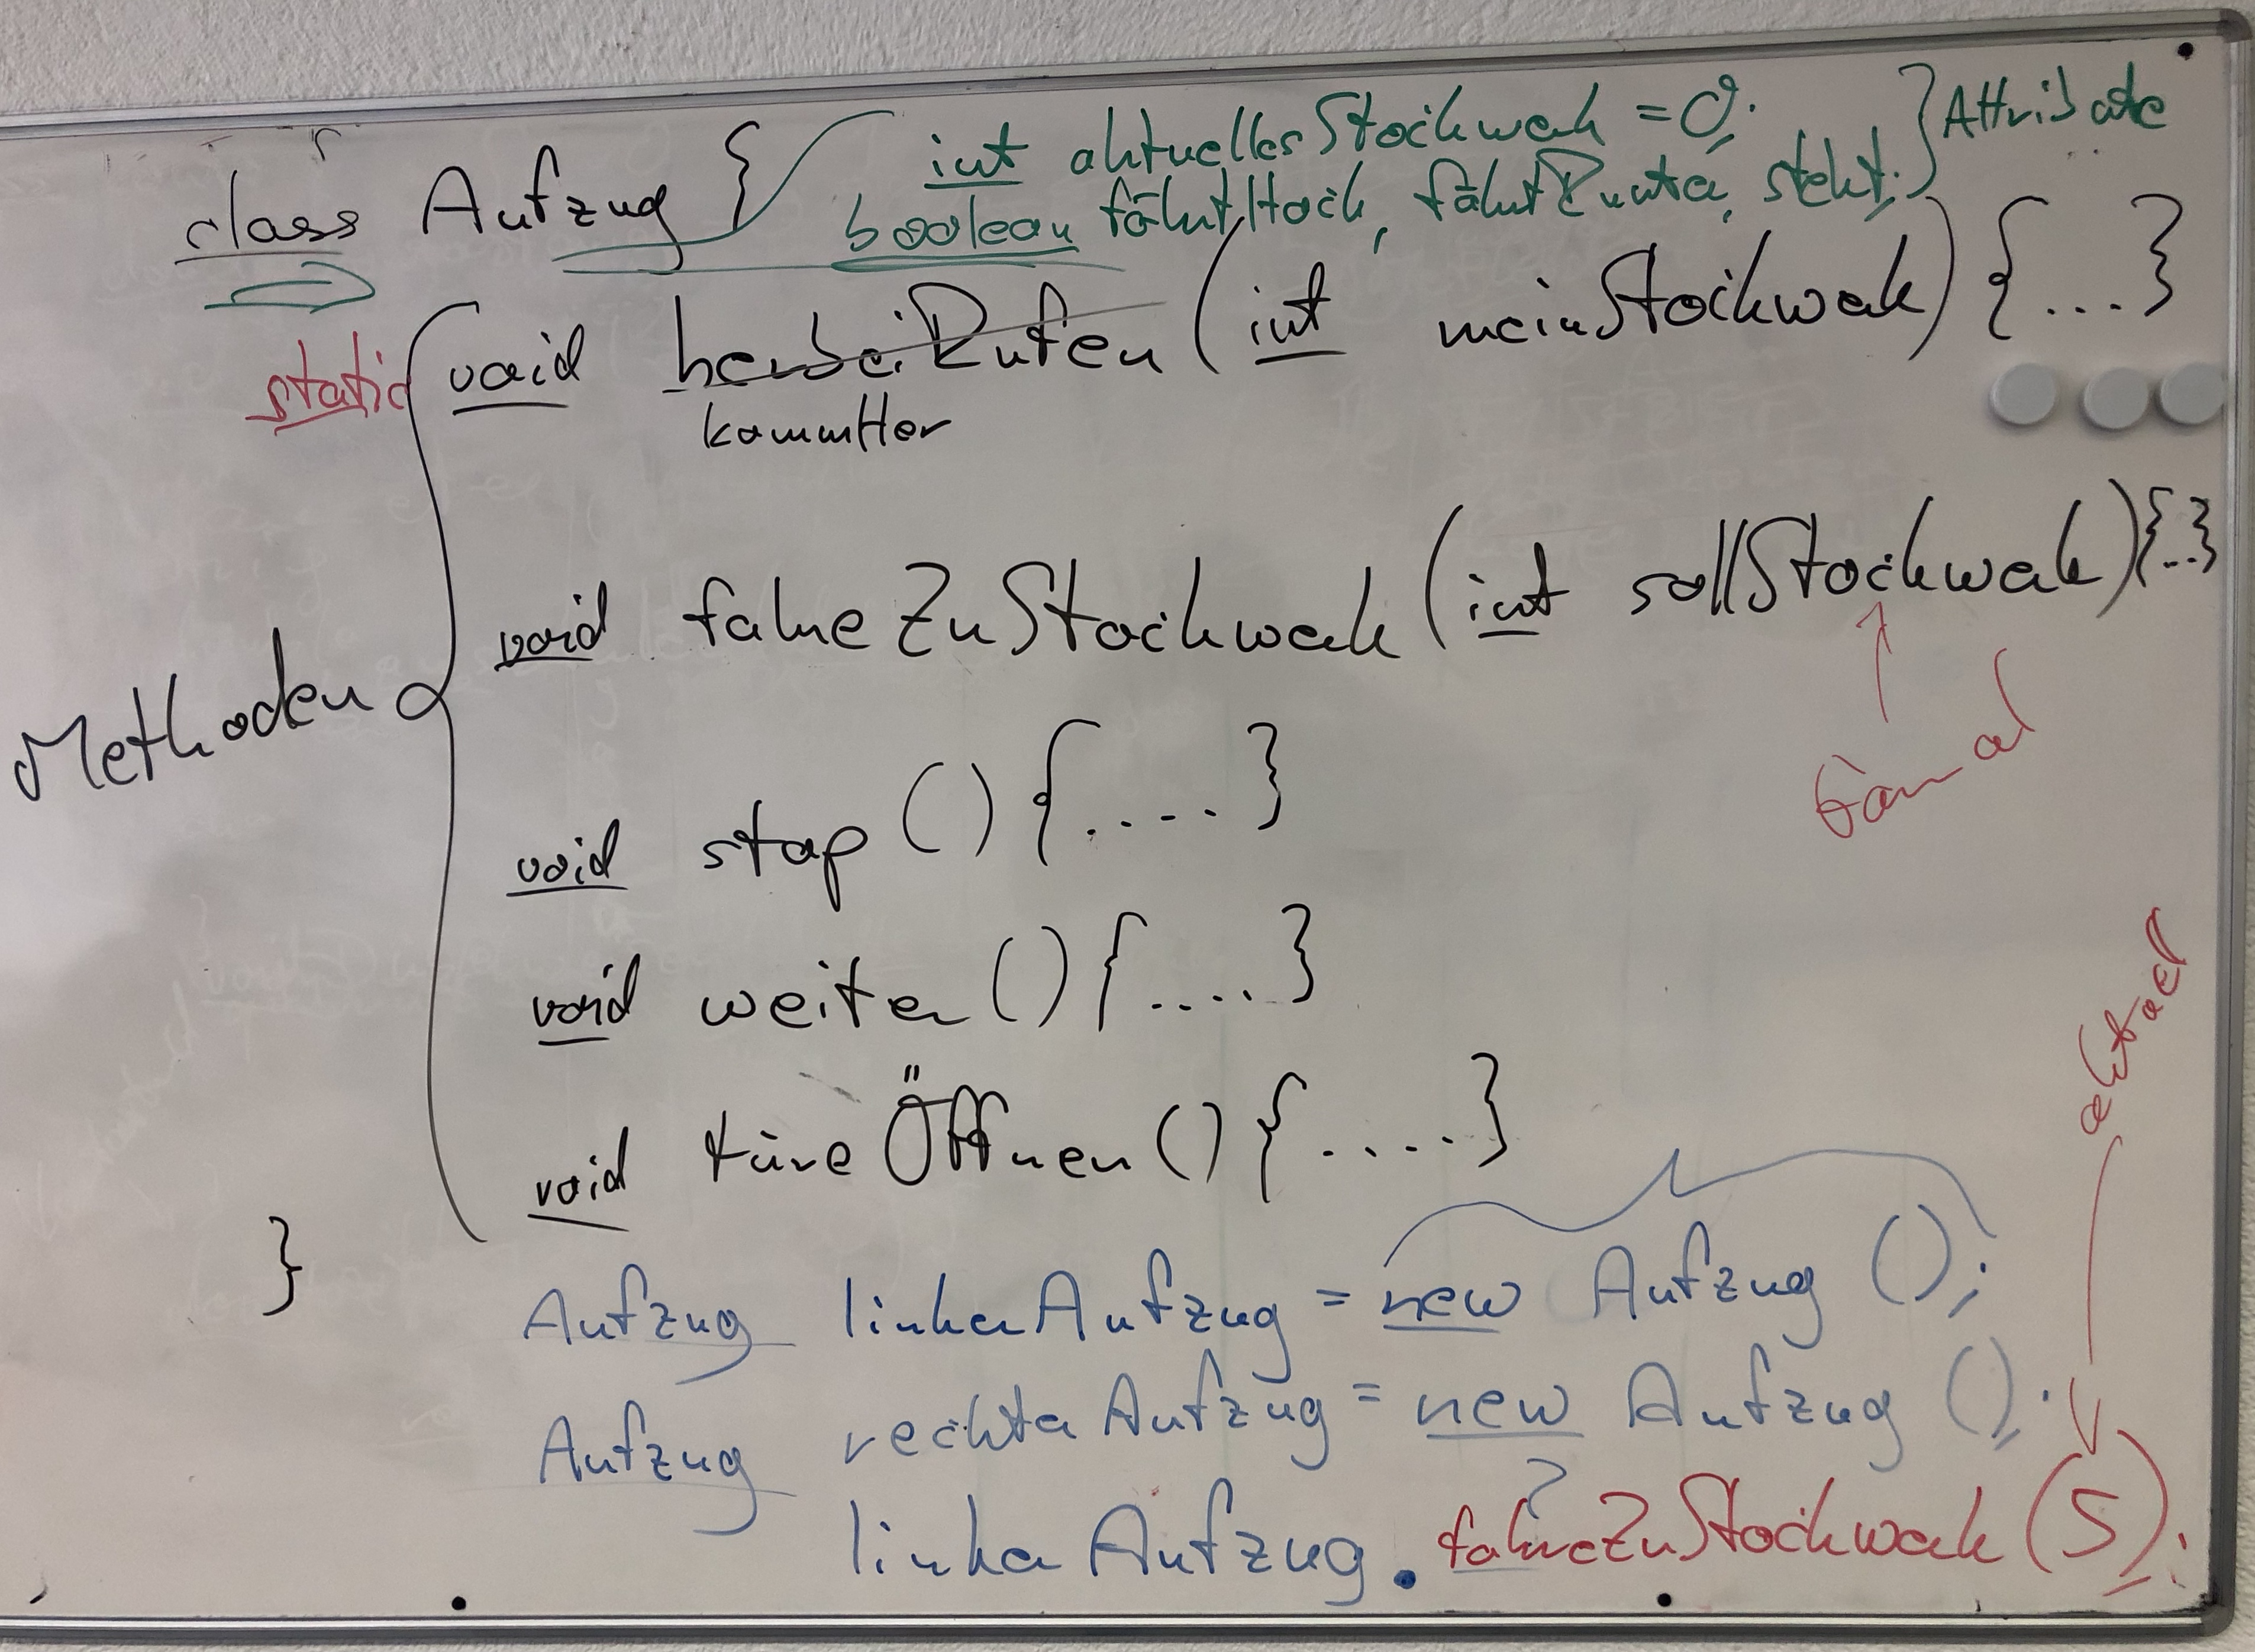 int aktuellesStockwerk = 0; } Attribute
class Aufzug { boolean fährtHoch, fährtRunter, steht;
static void herbeiRufen (int meinStockwerk) {...}
kommHer
void fahreZuStockwerk (int sollStockwerk) {...}
formal
Methoden
void stop () {....}
void weiter () {....}
void türeÖffnen () {....}
}
aktuell
Aufzug linkerAufzug = new Aufzug ();
Aufzug rechterAufzug = new Aufzug ();
linkerAufzug.fahreZuStockwerk (5);